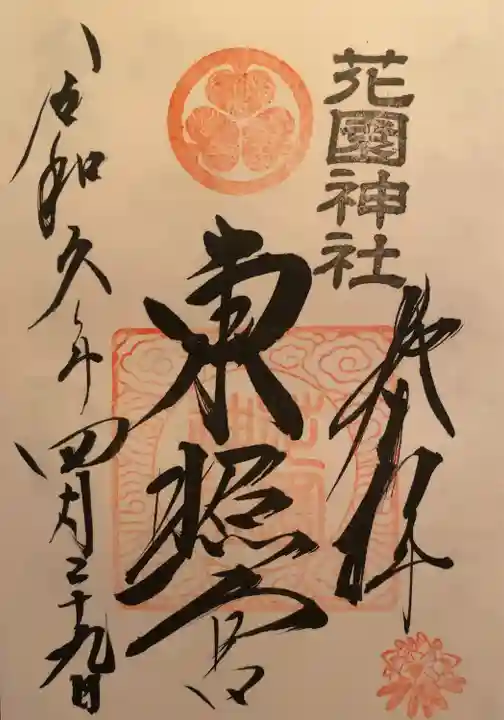 花園神社
奉拝
東照宮
令和年四月二十九日